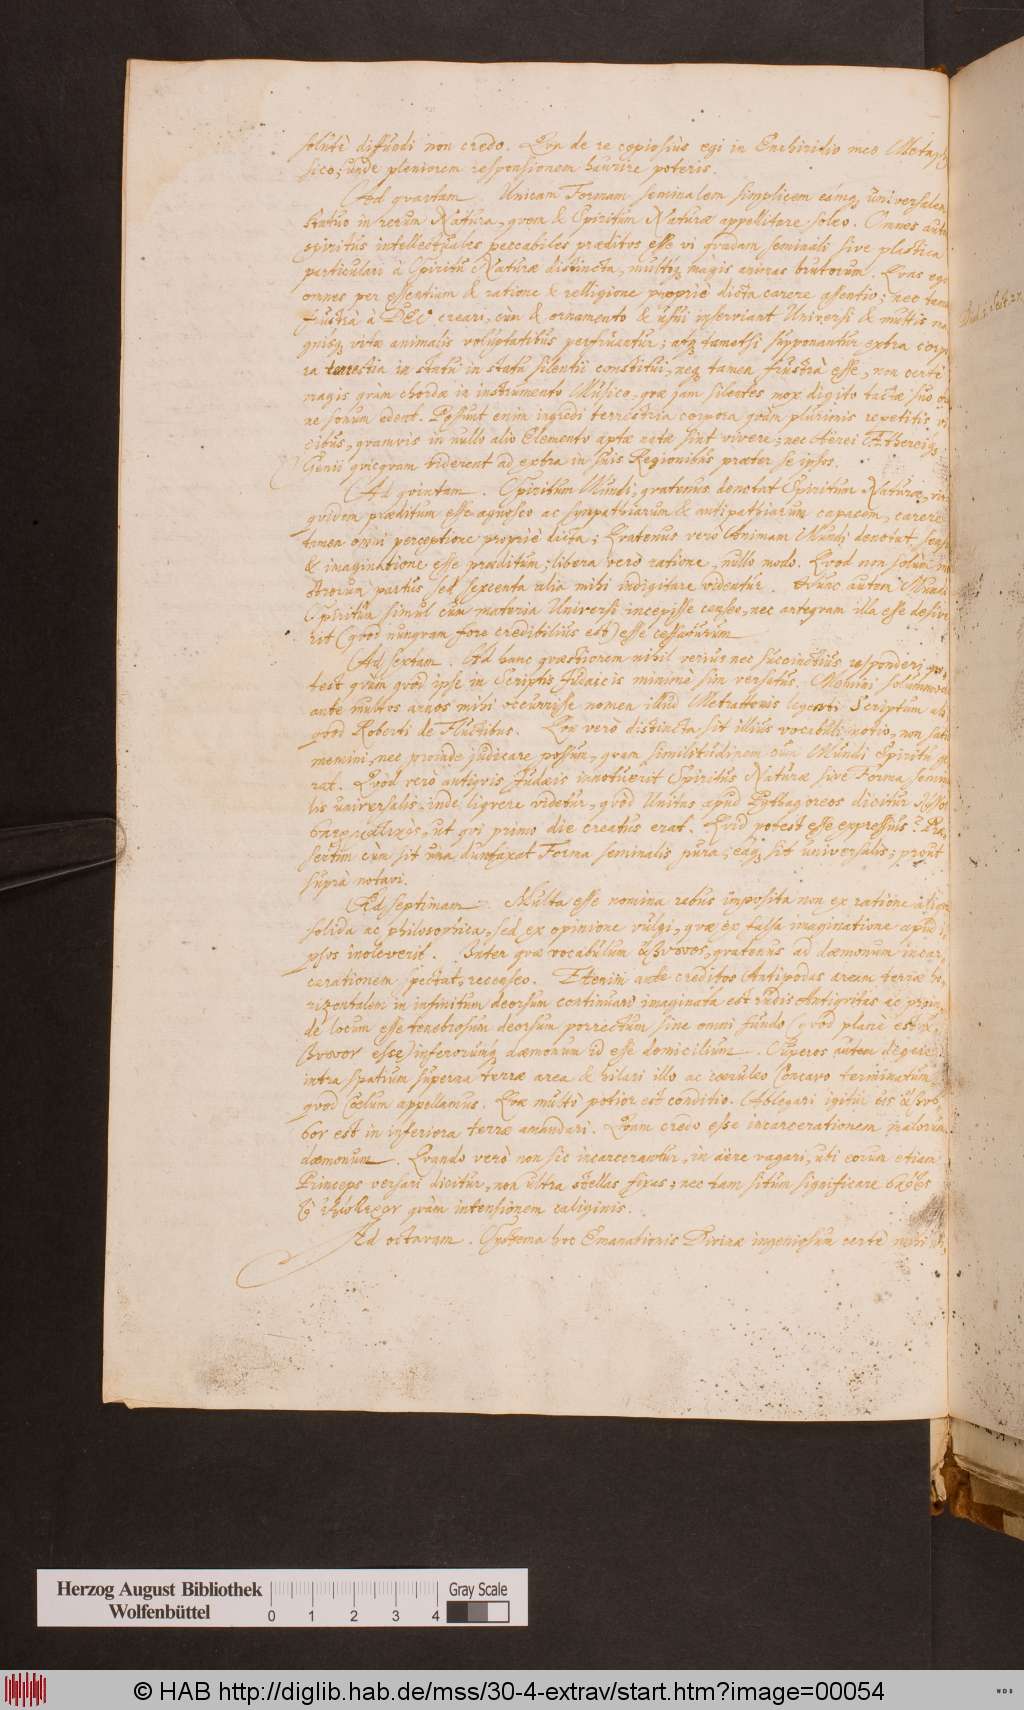 solutè diffundi non credo. Qva de re copiosiùs egi in Enchiridio meo Metaphy
sico; unde pleniorem responsionem haurire poteris.
Ad qvartam. Unicam Formam seminalem simplicem eámq; universalem
statuo in rerum Natura, qvem & Spiritum Naturæ appellitare soleo. Omnes autem
spiritus intellectuales peccabiles præditos esse vi qvadam seminali sive plastica
particulari à Spiritu Naturæ distincta, multóq; magis animas brutorum. Qvas ego
omnes per essentiam & ratione & relligione propriè dicta carere assentio; nec tamen
frustrà à DEO creari, cùm & ornamento & usui inserviant Universi & multis ma
gnisq; vitæ animalis voluptatibus perfruantur; atq; tametsi supponantur extra corpo
ra terrestria in statu in statu silentii constitui, neq; tamen frustrà esse, non certè
magis qvàm chordæ in instrumento Musico, qvæ jam silentes mox digito tactæ suo ordi
ne sonum edent. Possunt enim ingredi terrestria corpora qvàm plurimis repetitis vi
cibus, qvamvis in nullo alio Elemento aptæ natæ sint vivere; nec Aërei Ætherei[ve]
Genii qvicqvam viderent ad extra in suis Regionibus præter se ipsos.
Ad qvintam. Spiritum Mundi, qvatenus denotat Spiritum Naturæ, vita
qvidem præditum esse agnosco ac sympathiarum & antipathiarum capacem, carere
tamen omni perceptione propriè dicta; Qvatenus verò Animam Mundi denotat, sensu
& imaginatione esse præditum; libera verò ratione, nullo modo. Qvod non solùm mon
strorum partus sed sexcenta alia mihi indigitare videntur. Nunc autem Mundi
Spiritum simul cùm materia Universi incepisse censeo, nec anteqvam illa esse desive
rit (qvod nunqvam fore credibilius est) esse cessaturum
Ad sextam. Ad hanc qvæstionem nihil verius nec succinctius responderi po
test qvàm qvod ipse in Scriptis Judaicis minimè sim versatus. Memini solummodo
ante multos annos mihi occurrisse nomen illud Metrattonis legenti Scriptum ali
qvod Roberti de Fluctibus. Qvàm verò distincta sit illius vocabuli notio, non satis
memini, nec proinde judicare possum, qvam similitudinem cum Mundi Spiritu ge
rat. Qvòd verò antiqvis Judæis innotuerit Spiritus Naturæ sive Forma semina
lis universalis, inde liqvere videtur, qvòd Unitas apud Pythagoreos dicitur
ut qvi primo die creatus erat. Qvid potest esse expressius? Præ
sertim cùm sit una duntaxat Forma seminalis pura; eáq; sit universalis; prout
suprà notavi.
Ad septimam. Multa esse nomina rebus imposita non ex ratione aliqva
solida ac philosophica, sed ex opinione vulgi, qvæ ex falsa imaginatione apud i
psos inoleverit. Inter qvæ vocabulum ἄβυσσος, qvatenus ad dæmonum incar
cerationem spectat, recenseo. Etenim ante creditos Antipodas aream terræ ho
rizontalem in infinitum deorsum continuari imaginata est rudis Antiqvitas ac proin
de locum esse tenebrosum deorsum porrectum sine omni fundo (qvod planè est ἄ
βυσσον esse) inferorumq; dæmonum id esse domicilium. Superos autem degere
intra spatium superna terræ area & hilari illo ac cœruleo Concavo terminatum
qvod Cœlum appellamus. Qvæ multò potior est conditio. Ablegari igitur εἰς ἄβυσ
σον est in inferiora terræ amandari. Qvam credo esse incarcerationem malorum
dæmonum. Qvando verò non sic incarcerantur, in aëre vagari, ubi eorum etiam
Princeps versari dicitur, non ultra stellas fixas; nec tam situm significare
qvàm intensionem caliginis.
Ad octavam. Systema hoc Emanationis Divinæ ingeniosum certè mihi vi
Herzog August Bibliothek
Wolfenbüttel
0 1 2 3 4
Gray Scale
© HAB http://diglib.hab.de/mss/30-4-extrav/start.htm?image=00054